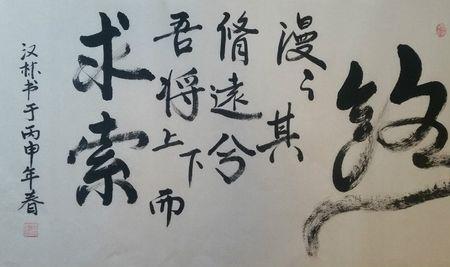 路
漫々其
脩遠兮
吾将上下而
求索
汉栋书于丙申年春